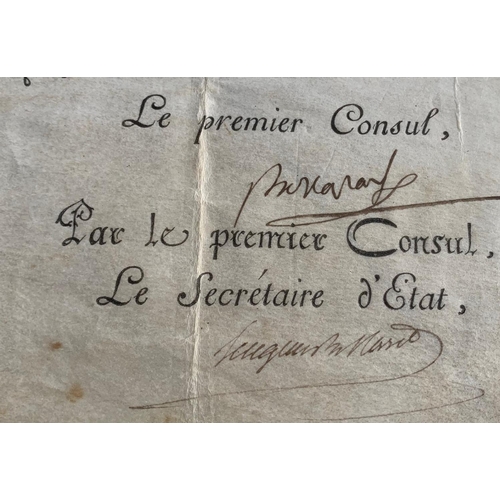 Le premier Consul,
Bonaparte
Par le premier Consul,
Le Secrétaire d'Etat,
hugues B. Maret